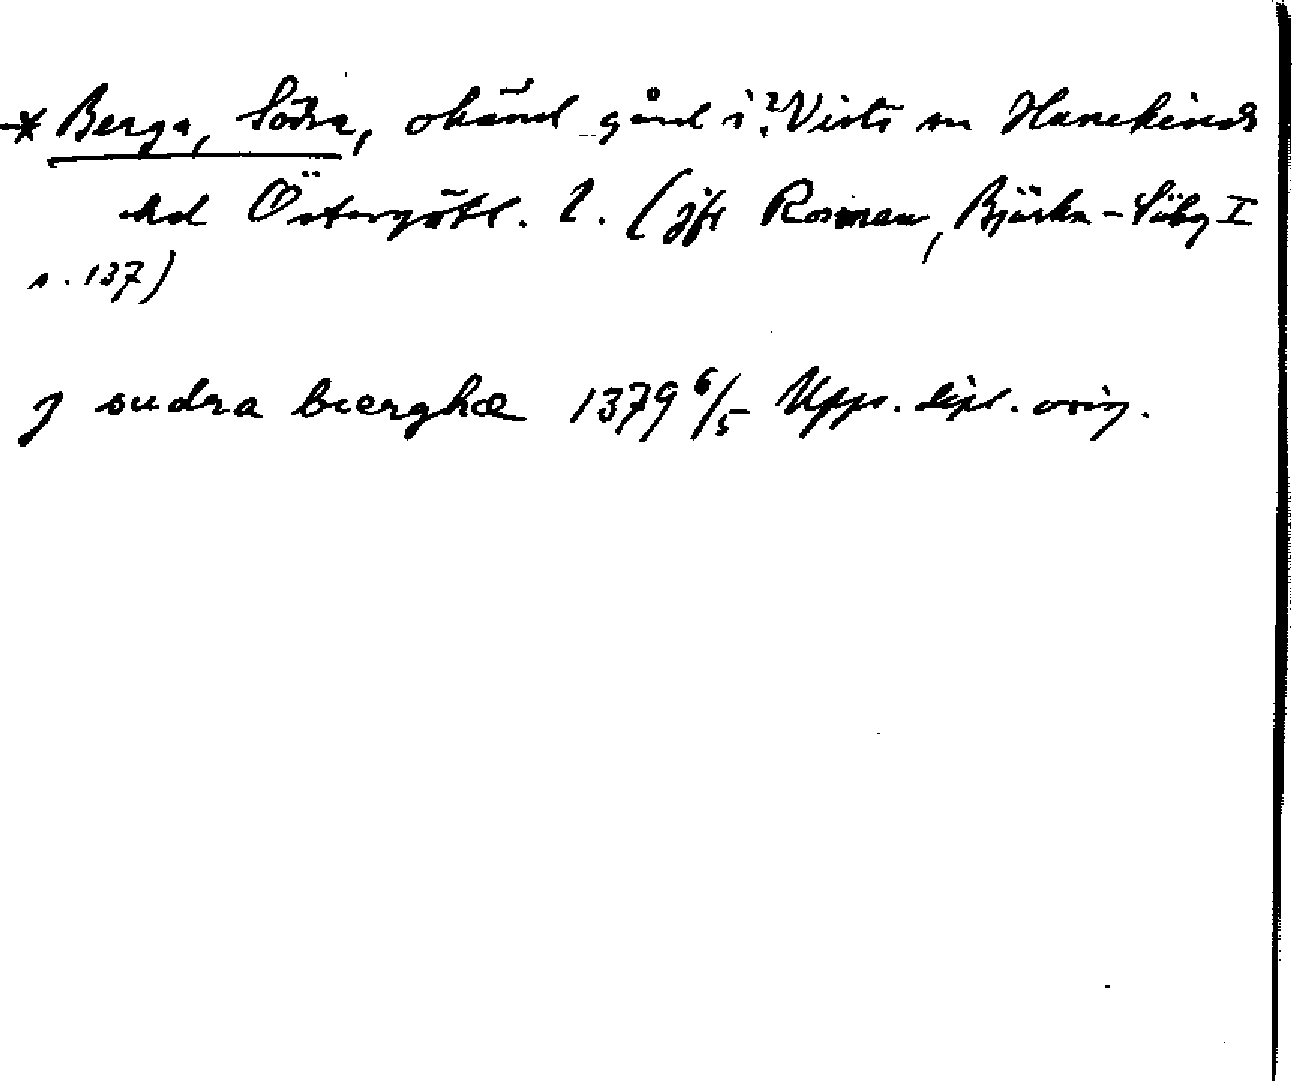 * Berga, Södra, okänd gård i ? Vists sn Hanekinds
hd Östergötl. l. (jfr Rosman, Bjärka-Säby I
s. 137)
j sudra bærghæ 1379 6/5 Upps. dipl. orig.